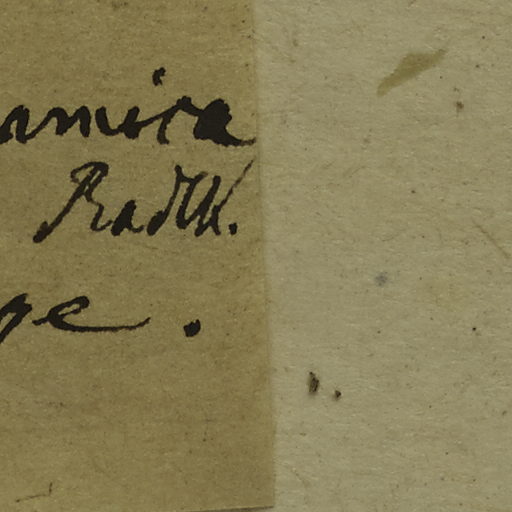 amica
Radlk.
ge.